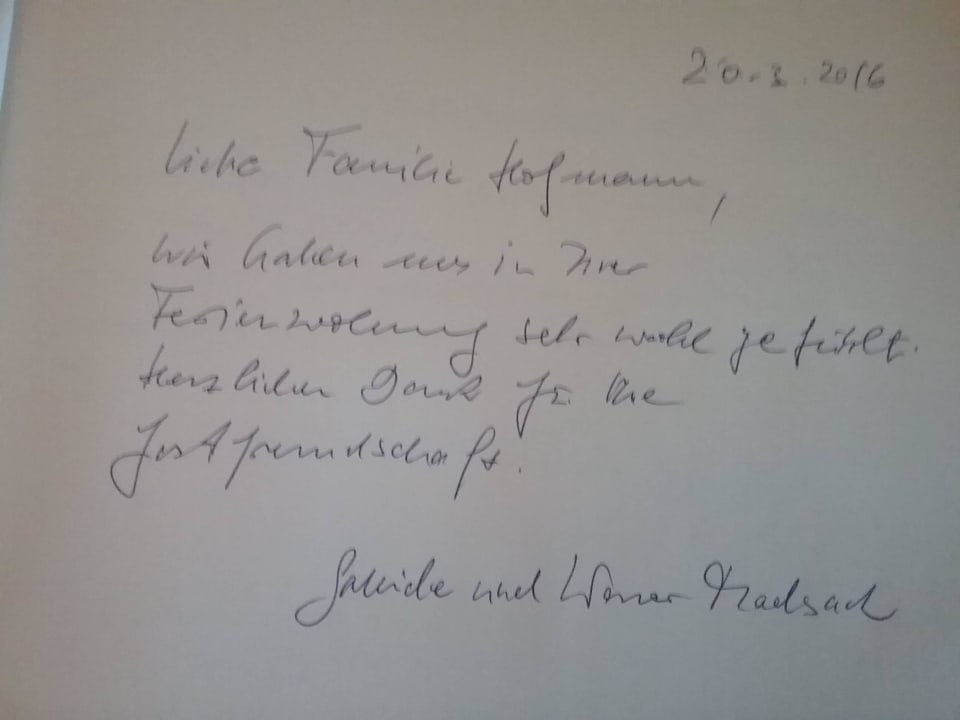 20.3.2016
Liebe Familie Hofmann,
wir haben uns in Ihrer
Ferienwohnung sehr wohl gefühlt.
Herzlichen Dank für Ihre
Gastfreundschaft.
und Werner